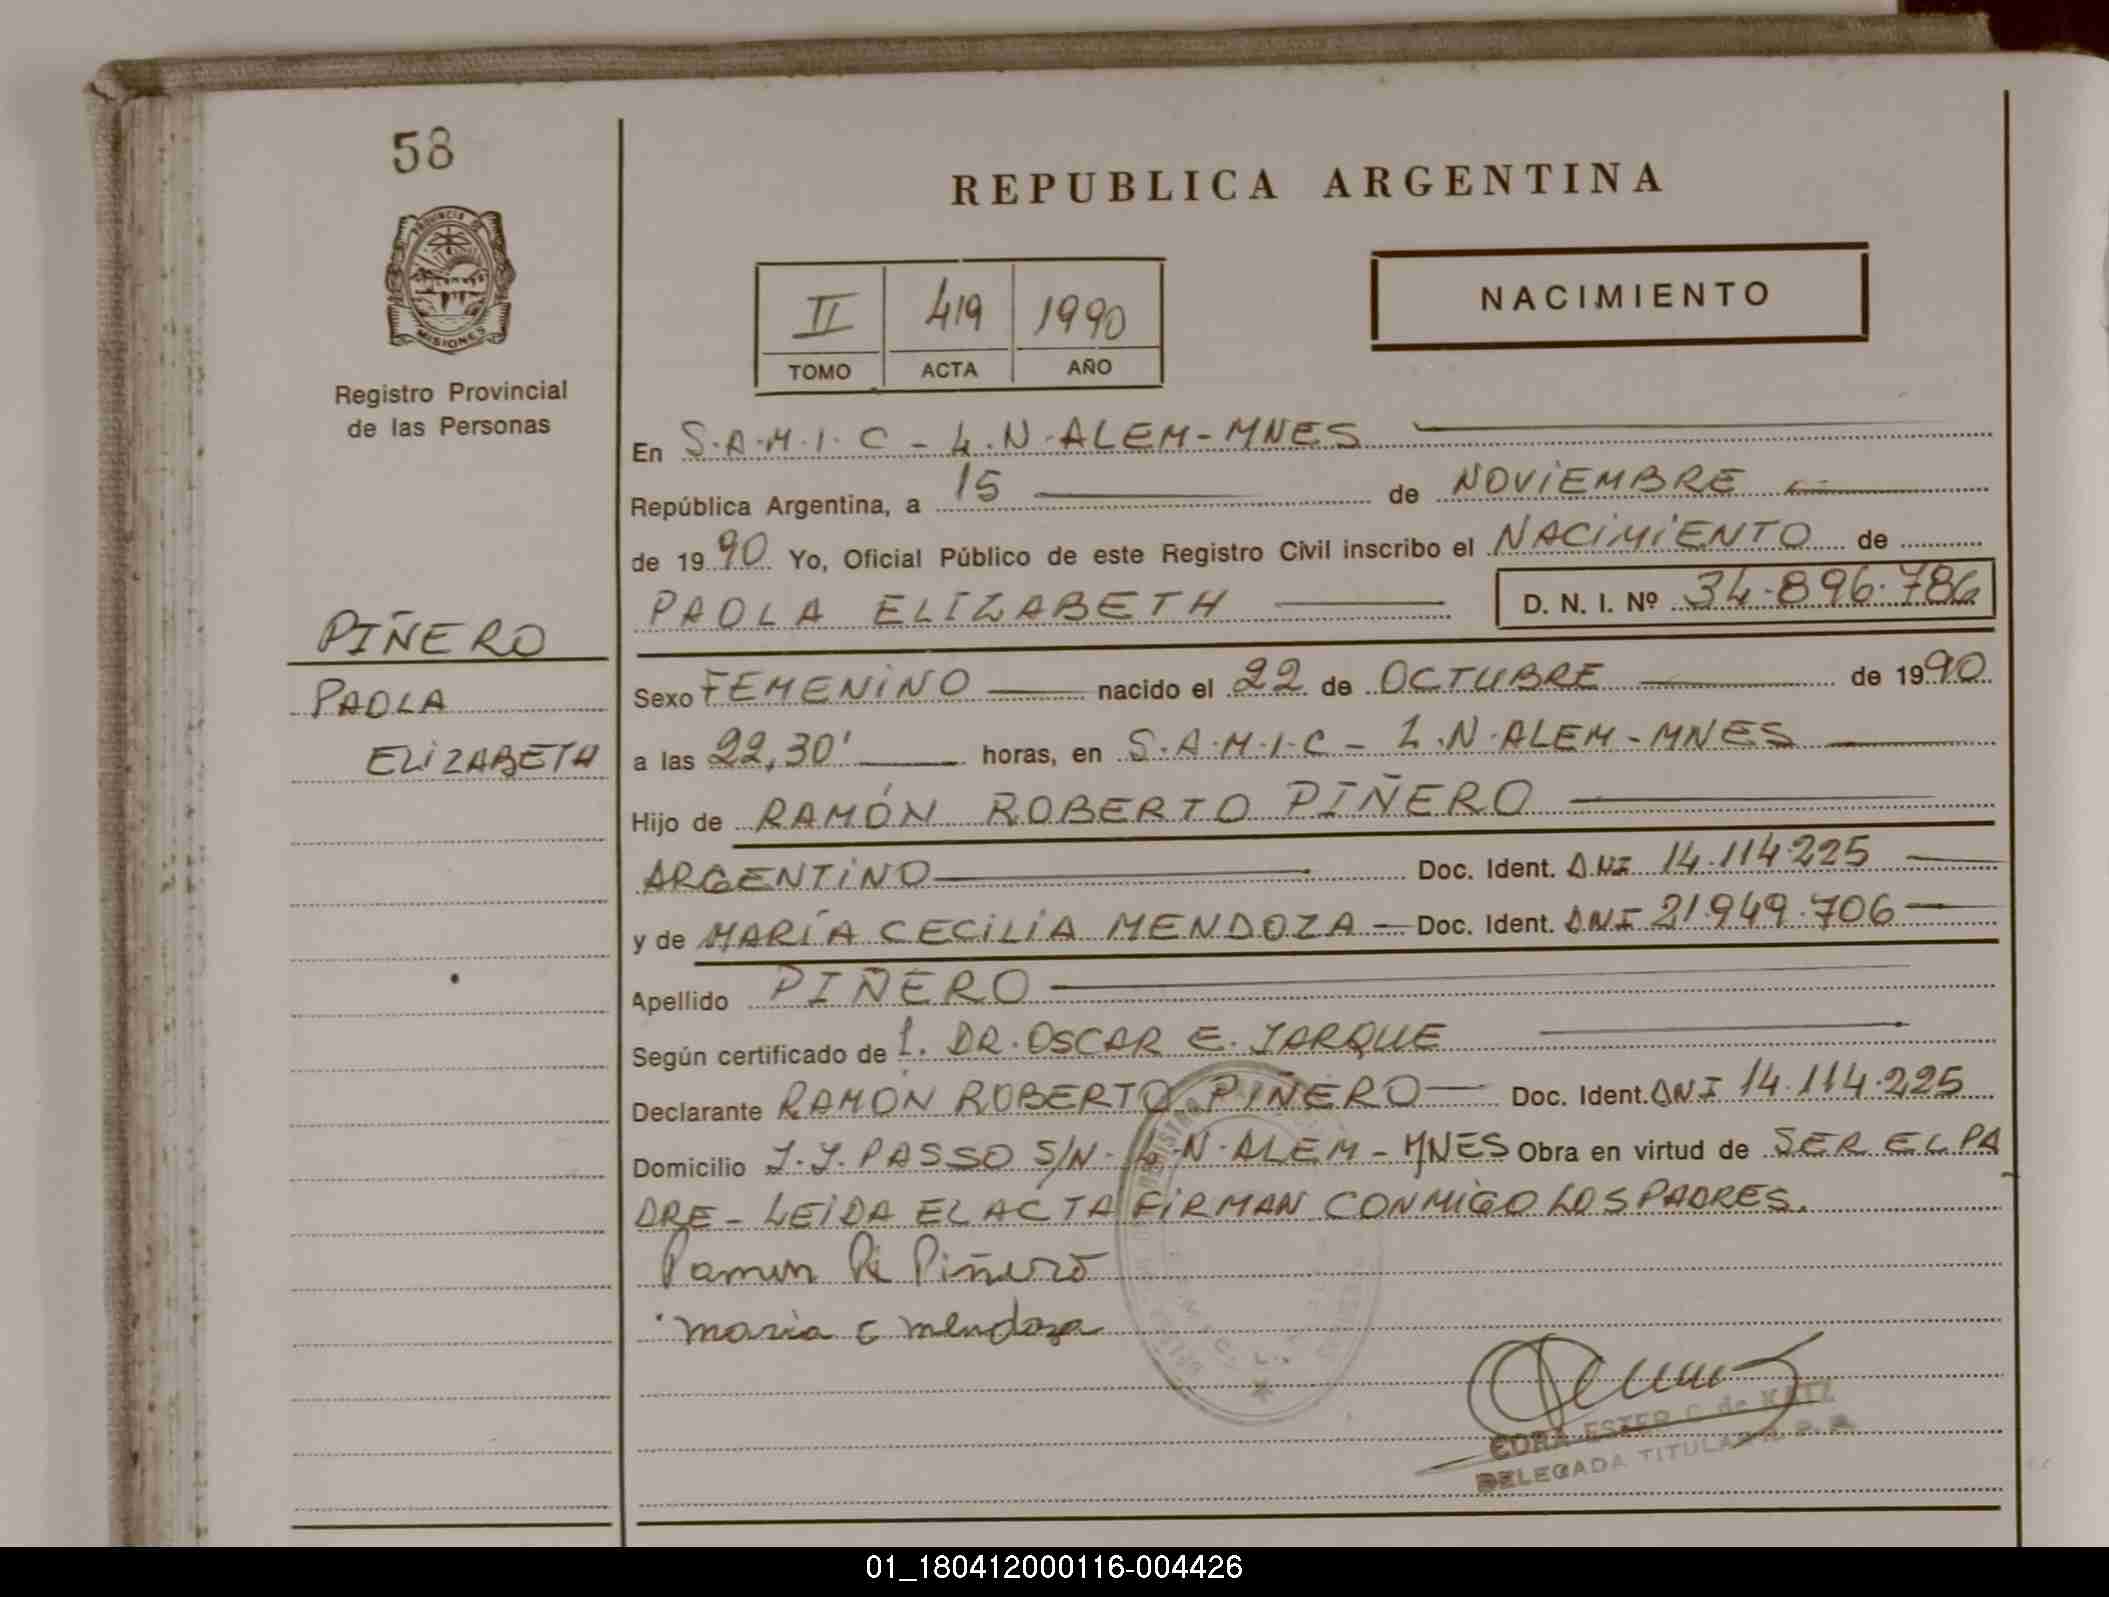 58
PROVINCIA DE
MISIONES
Registro Provincial
de las Personas
PIÑERO
PAOLA
ELIZABETH
REPUBLICA ARGENTINA
II 419 1990
TOMO ACTA AÑO
NACIMIENTO
En S.A.M.I.C - L.N.ALEM-MNES
República Argentina, a 15 de NOVIEMBRE
de 1990 Yo, Oficial Público de este Registro Civil inscribo el NACIMIENTO de
PAOLA ELIZABETH D. N. I. Nº 34.896.786
Sexo FEMENINO nacido el 22 de OCTUBRE de 1990
a las 22,30' horas, en S.A.M.I.C - L.N.ALEM-MNES
Hijo de RAMÓN ROBERTO PIÑERO
ARGENTINO Doc. Ident. DNI 14.114.225
y de MARÍA CECILIA MENDOZA - Doc. Ident. DNI 21.949.706
Apellido PIÑERO
Según certificado de DR. OSCAR E. JARQUE
Declarante RAMÓN ROBERTO PIÑERO Doc. Ident. DNI 14.114.225
Domicilio J.J. PASSO S/N - L.N.ALEM-MNES Obra en virtud de SER EL PA
DRE - LEIDA EL ACTA FIRMAN CONMIGO LOS PADRES.
Ramon R Piñero
maria c mendoza
CORA ESTER C. de KATZ
DELEGADA TITULAR R. P. P.
01_180412000116-004426